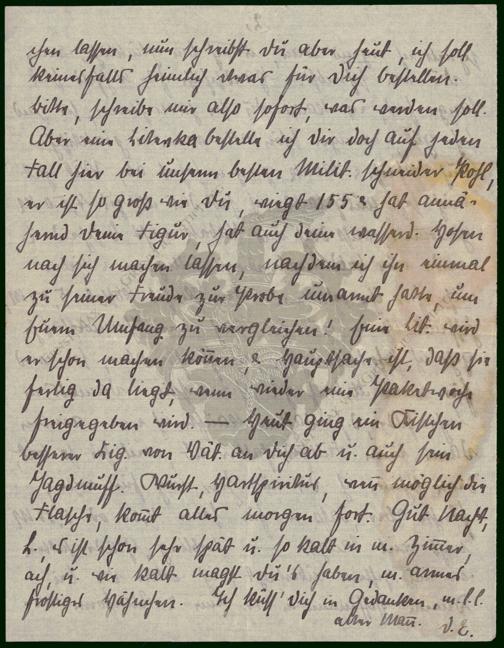 2.
chen lassen, nun schreibst du aber heut, ich soll
keinesfalls heimlich etwas für dich bestellen.
Bitte, schreibe mir also sofort, was werden soll.
Aber eine Litewka bestelle ich dir doch auf jeden
Fall hier bei unserm besten Milit. schneider Pohl,
er ist so groß wie du, wiegt 155 & hat annä-
hernd deine Figur, hat auch deine wasserd. Hosen
nach sich machen lassen, nachdem ich ihn einmal
zu seiner Freude zur Probe umarmt hatte, um
Euern Umfang zu vergleichen! Eine Lit. wird
er schon machen können, & Hauptsache ist, daß sie
fertig da liegt wenn wieder eine Paketwoche
freigegeben wird. — Heut ging ein Kistchen
besserer Zig. von Vat. an dich ab u. auch sein
Jagdmuff. Wurst, Hartspiritus, wenn möglich die
Flasche kom̄t alles morgen fort. Gut Nacht,
L., s'ist schon sehr spät u. so kalt in m. Zim̄er,
ach, u. wie kalt magst du's haben, m. armes
frostiges Hähnchen. Ich küss' dich in Gedanken, m. l. l.
alter Man̄. d. E.